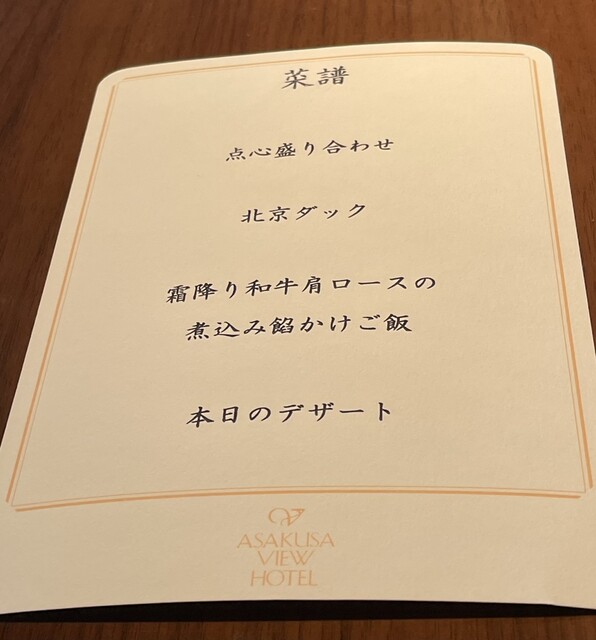 菜譜
点心盛り合わせ
北京ダック
霜降り和牛肩ロースの
煮込み餡かけご飯
本日のデザート
ASAKUSA
VIEW
HOTEL